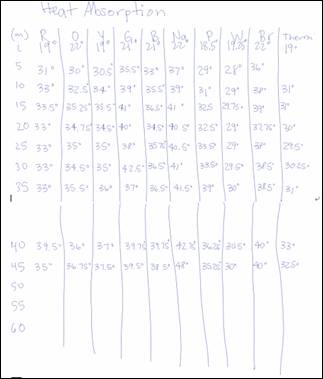 Heat Absorption
(m) R O Y G B Na P W Br Therm
19° 22° 19° 21° 21° 22° 18.5° 19.75° 22° 19°
5 31° 30° 30.5° 35.5° 33° 37° 29° 28° 36°
10 33° 32.5° 34° 39° 35.5° 39° 31° 29° 38° 31°
15 33.5° 35.25° 33.5° 41° 36.5° 41° 32.5 29.75° 39° 31°
20 33° 34.75° 34.5° 40° 34.5° 40.5° 32.5° 29° 37.75° 30°
25 33° 35° 35° 38° 35.75° 40.5° 33.5° 29° 38° 29.5°
30 33° 34.5° 35° 42.5° 36.5° 41° 33.5° 29.5° 38.5° 30.25°
35 33° 35.5° 36° 37° 36.5° 41.5° 39° 30° 38.5° 31°
40 39.5° 36° 37° 39.75° 39.75° 42.75° 36.25° 30.5° 40° 33°
45 35° 36.75° 37.5° 39.5° 38.5° 48° 35.25° 30° 40° 32.5°
50
55
60